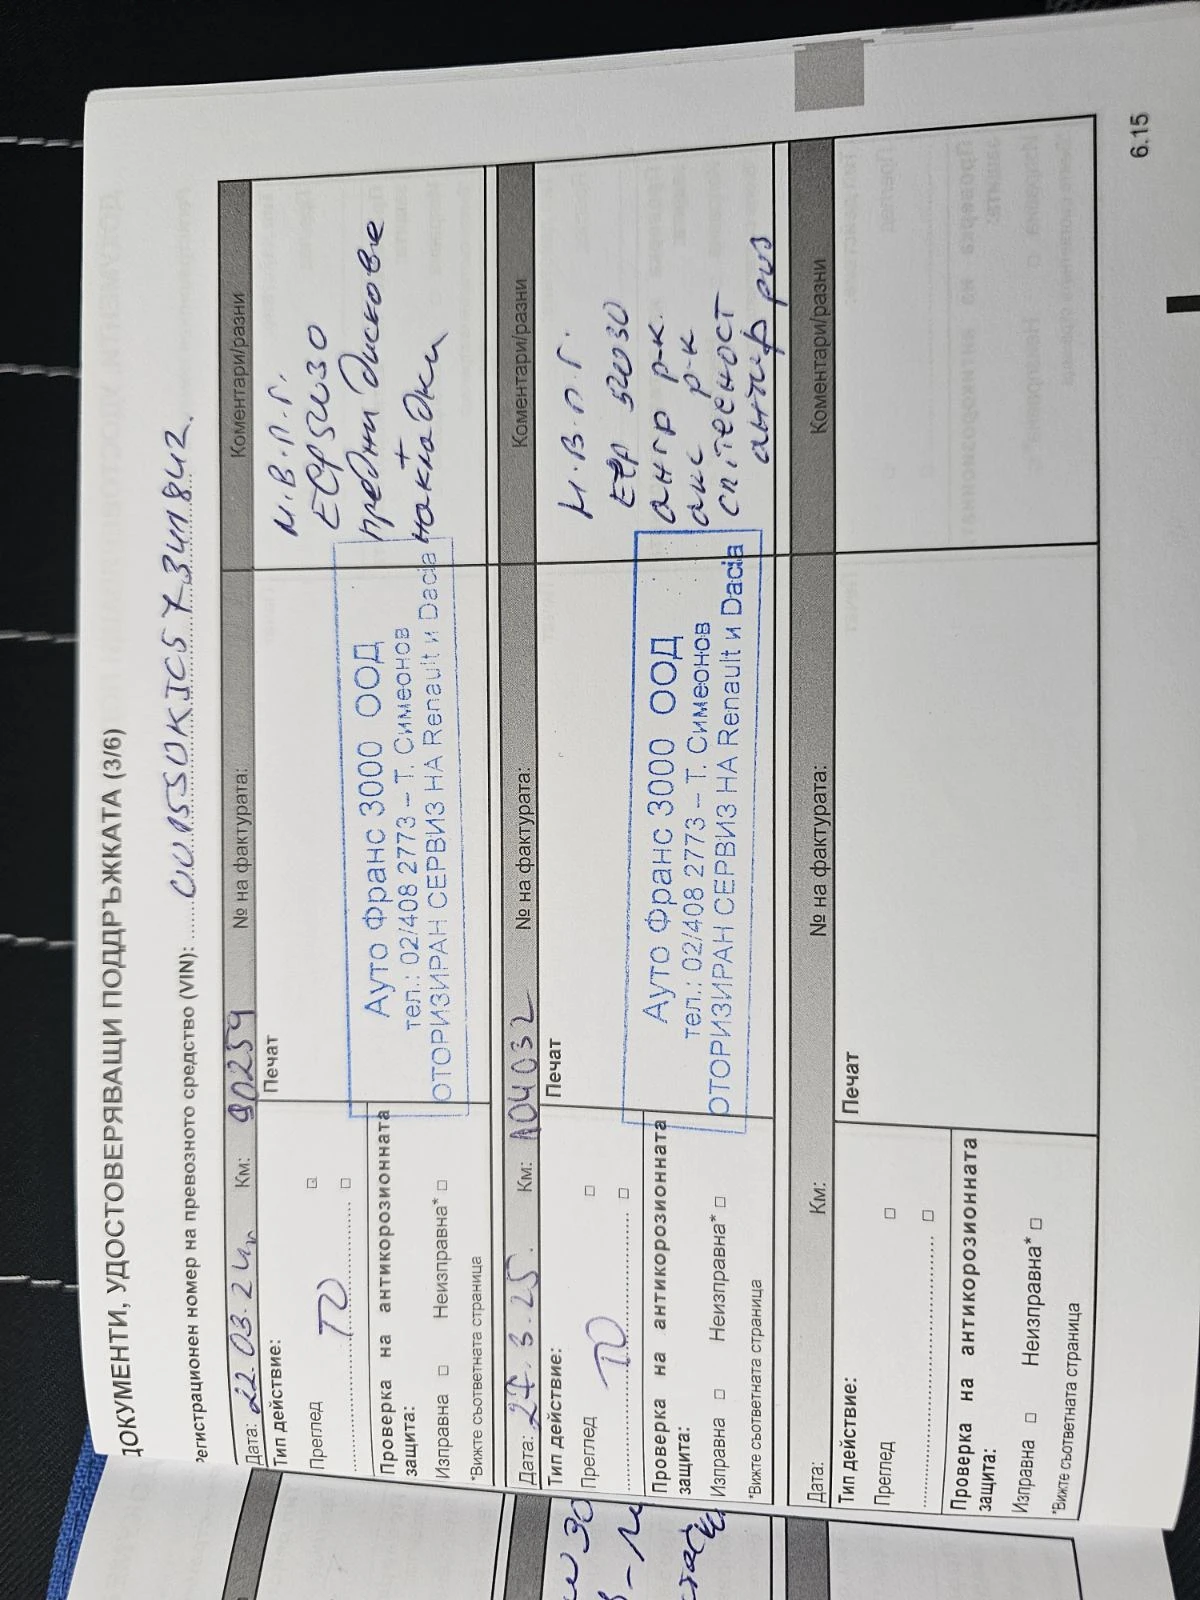 ДОКУМЕНТИ, УДОСТОВЕРЯВАЩИ ПОДДРЪЖКАТА (3/6)
Регистрационен номер на превозното средство (VIN):
Дата: 22.03.24г. Км: 90259 № на фактурата: Коментари/разни
Тип действие: Печат
Преглед
ТО
Проверка на антикорозионната защита:
Изправна Неизправна*
*Вижте съответната страница
Ауто Франс 3000 ООД
тел.: 02/408 2773 – Т. Симеонов
ОТОРИЗИРАН СЕРВИЗ НА Renault и Dacia
М.В.П.Г.
ECP5W30
предни дискове
+
накладки
Дата: 27.3.25. Км: 104032 № на фактурата: Коментари/разни
Тип действие: Печат
Преглед
ТО
Проверка на антикорозионната защита:
Изправна Неизправна*
*Вижте съответната страница
Ауто Франс 3000 ООД
тел.: 02/408 2773 – Т. Симеонов
ОТОРИЗИРАН СЕРВИЗ НА Renault и Dacia
М.В.П.Г.
5W30
р-к.
р-к
антифриз
Дата: Км: № на фактурата: Коментари/разни
Тип действие: Печат
Преглед
Проверка на антикорозионната защита:
Изправна Неизправна*
*Вижте съответната страница
6.15